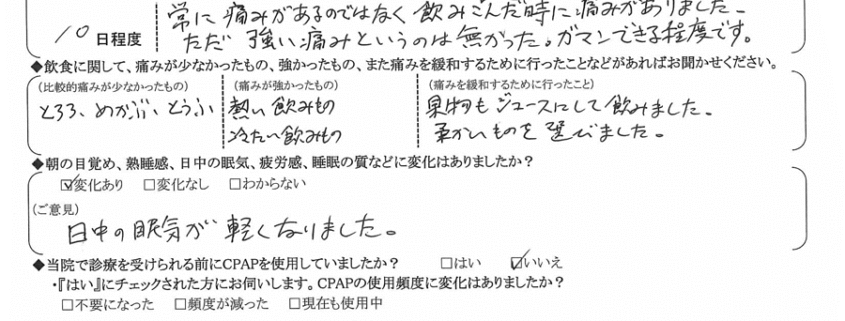 常に痛みがあるのではなく飲みこんだ時に痛みがありました。
10日程度 ただ強い痛みというのは無かった。ガマンできる程度です。
◆飲食に関して、痛みが少なかったもの、強かったもの、また痛みを緩和するために行ったことなどがあればお聞かせください。
(比較的痛みが少なかったもの) (痛みが強かったもの) (痛みを緩和するために行ったこと)
とろろ、めかぶ、とうふ 熱い飲みもの 果物もジュースにして飲みました。
冷たい飲みもの 柔かいものを選びました。
◆朝の目覚め、熟睡感、日中の眠気、疲労感、睡眠の質などに変化はありましたか？
☑変化あり □変化なし □わからない
(ご意見)
日中の眠気が軽くなりました。
◆当院で診療を受けられる前にCPAPを使用していましたか？ □はい ☑いいえ
・『はい』にチェックされた方にお伺いします。CPAPの使用頻度に変化はありましたか？
□不要になった □頻度が減った □現在も使用中